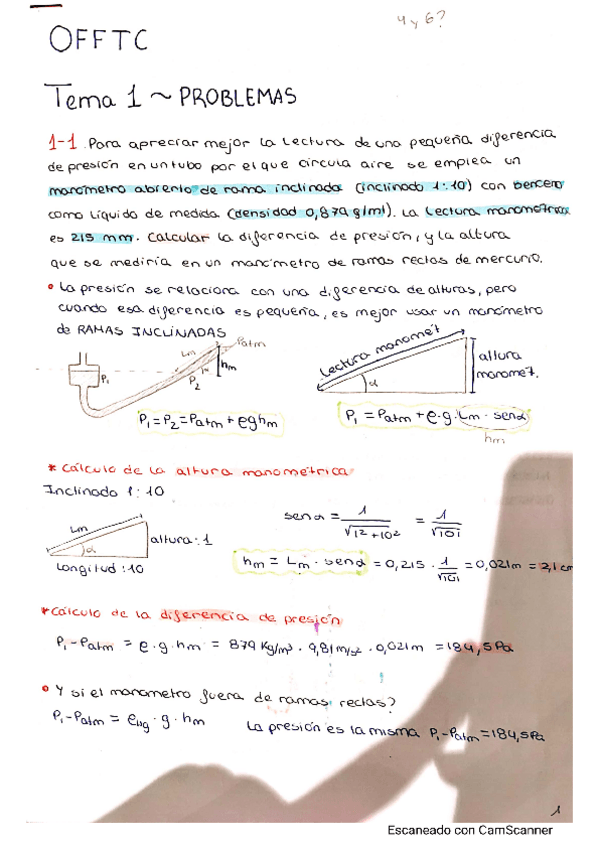 4 y 6?
OFFTC
Tema 1 ~ PROBLEMAS
1-1. Para apreciar mejor la lectura de una pequeña diferencia
de presión en un tubo por el que circula aire se emplea un
manómetro abierto de rama inclinada (inclinado 1:10) con benceno
como líquido de medida (densidad 0,879 g/ml). La lectura manométrica
es 215 mm. Calcular la diferencia de presión, y la altura
que se mediría en un manómetro de ramas rectas de mercurio.
• La presión se relaciona con una diferencia de alturas, pero
cuando esa diferencia es pequeña, es mejor usar un manómetro
de RAMAS INCLINADAS
Patm
Lm
hm
P1
P2
1m
P1 = P2 = Patm + ρghm
Lectura manomét
altura
manomet.
α
P1 = Patm + ρ·g·Lm·senα
hm
* Cálculo de la altura manométrica
Inclinado 1:10
Lm
altura:1
α
Longitud:10
senα = 1/√(1²+10²) = 1/√101
hm = Lm · senα = 0,215 · 1/√101 = 0,021m = 2,1 cm
* Cálculo de la diferencia de presión
P1-Patm = ρ·g·hm = 879 Kg/m³ · 9,81 m/s² · 0,021m = 184,5 Pa
• Y si el manometro fuera de ramas rectas?
P1-Patm = ρHg · g · hm
La presión es la misma P1-Patm = 184,5Pa
1
Escaneado con CamScanner